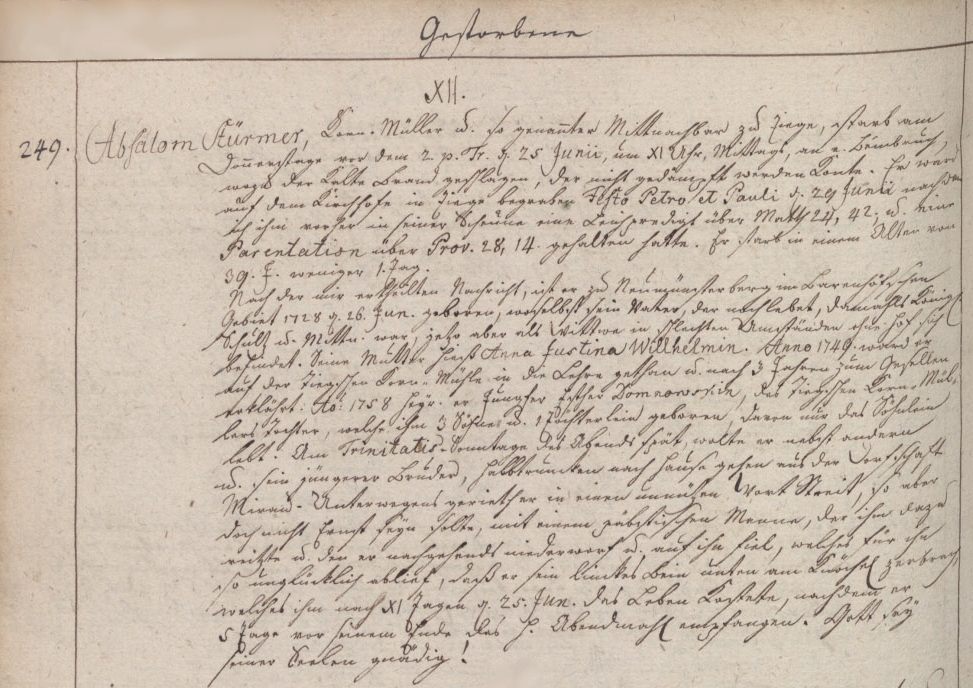 Gestorbene
XII.
249. Absalom Stürmer, Korn-Müller u. so genannter Mittnachbar zu Ziege, starb am
Donnerstage vor dem 2. p. Tr. d. 25 Junii, um XI Uhr, Mittags, an e. Beinbruch,
wozu der Kalte Brand geschlagen, der nicht gedämpft werden konte. Er ward
auf dem Kirchhofe in Ziege begraben Festo Petro et Pauli d. 29 Junii nachdem
ich ihm vorher in seiner Scheune eine Leichpredigt über Matth 24, 42. u. eine
Parentation über Prov. 28, 14. gehalten hatte. Er starb in einem Alter von
39. J. weniger 1. Tag.
Nach der mir ertheilten Nachricht, ist er zu Neumünsterberg im Barenhöfschen
Gebiet 1728 d. 26. Jun. geboren, woselbst sein Vater, der noch lebet, damahls Königl
Schultz u. Mittn. war, jetzo aber als Wittwer in schlechten Umständen ohne Hof sich
befindet. Seine Mutter hiess Anna Justina Willhelmin. Anno 1749. ward er
auf der Ziegschen Korn-Mühle in die Lehre gethan u. nach 3 Jahren zum Gesellen
erklährt. Ao: 1758 heyr. er Jungfer Esther Domnowskin, des Ziegschen Korn-Mül-
lers Tochter, welche ihm 3 Söhne u. 1 Töchterlein geboren, davon nur das Söhnlein
lebt. Am Trinitatis-Sonntage des Abends spät, wolte er nebst andern
u. sein jüngerer Bruder, halbtruncken nach Hause gehen aus der Dorfschaft
Mirau. Unterwegens gerieth er in einen unnützen Wort Streit, so aber
doch nicht Ernst seyn solte, mit einem päbstischen Manne, der ihn dazu
reitzte u. den er nachgehends niederworf u. auf ihn fiel, welches für ihn
so unglücklich ablief, daß er sein linckes Bein unten am Knöchel zerbrach,
welches ihm nach XI Tagen d. 25. Jun. das Leben kostete, nachdem er
5 Tage vor seinem Ende das H. Abendmahl empfangen. Gott sey
seiner Seelen gnädig!